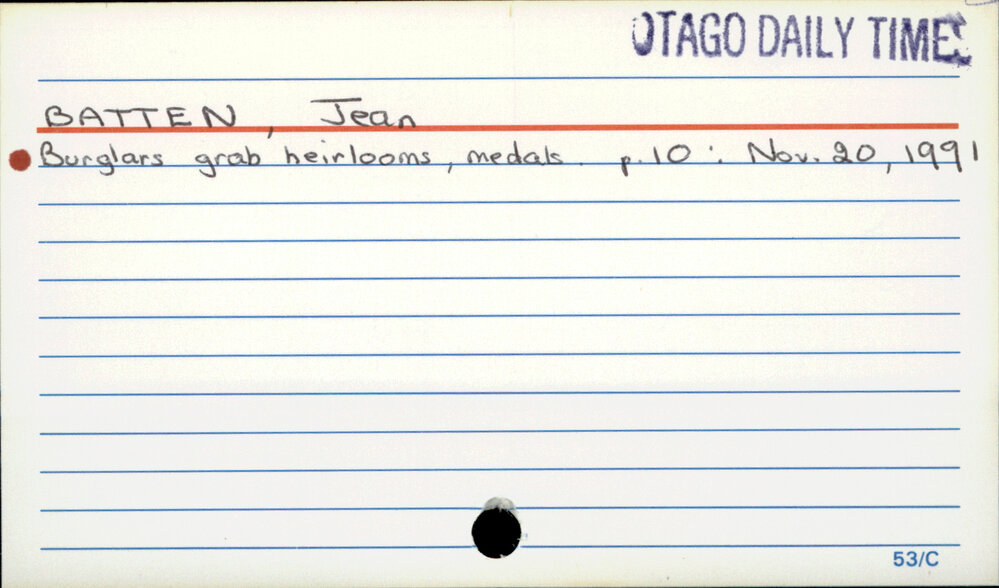 OTAGO DAILY TIMES
BATTEN, Jean
Burglars grab heirlooms, medals. p.10 : Nov. 20, 1991
53/C